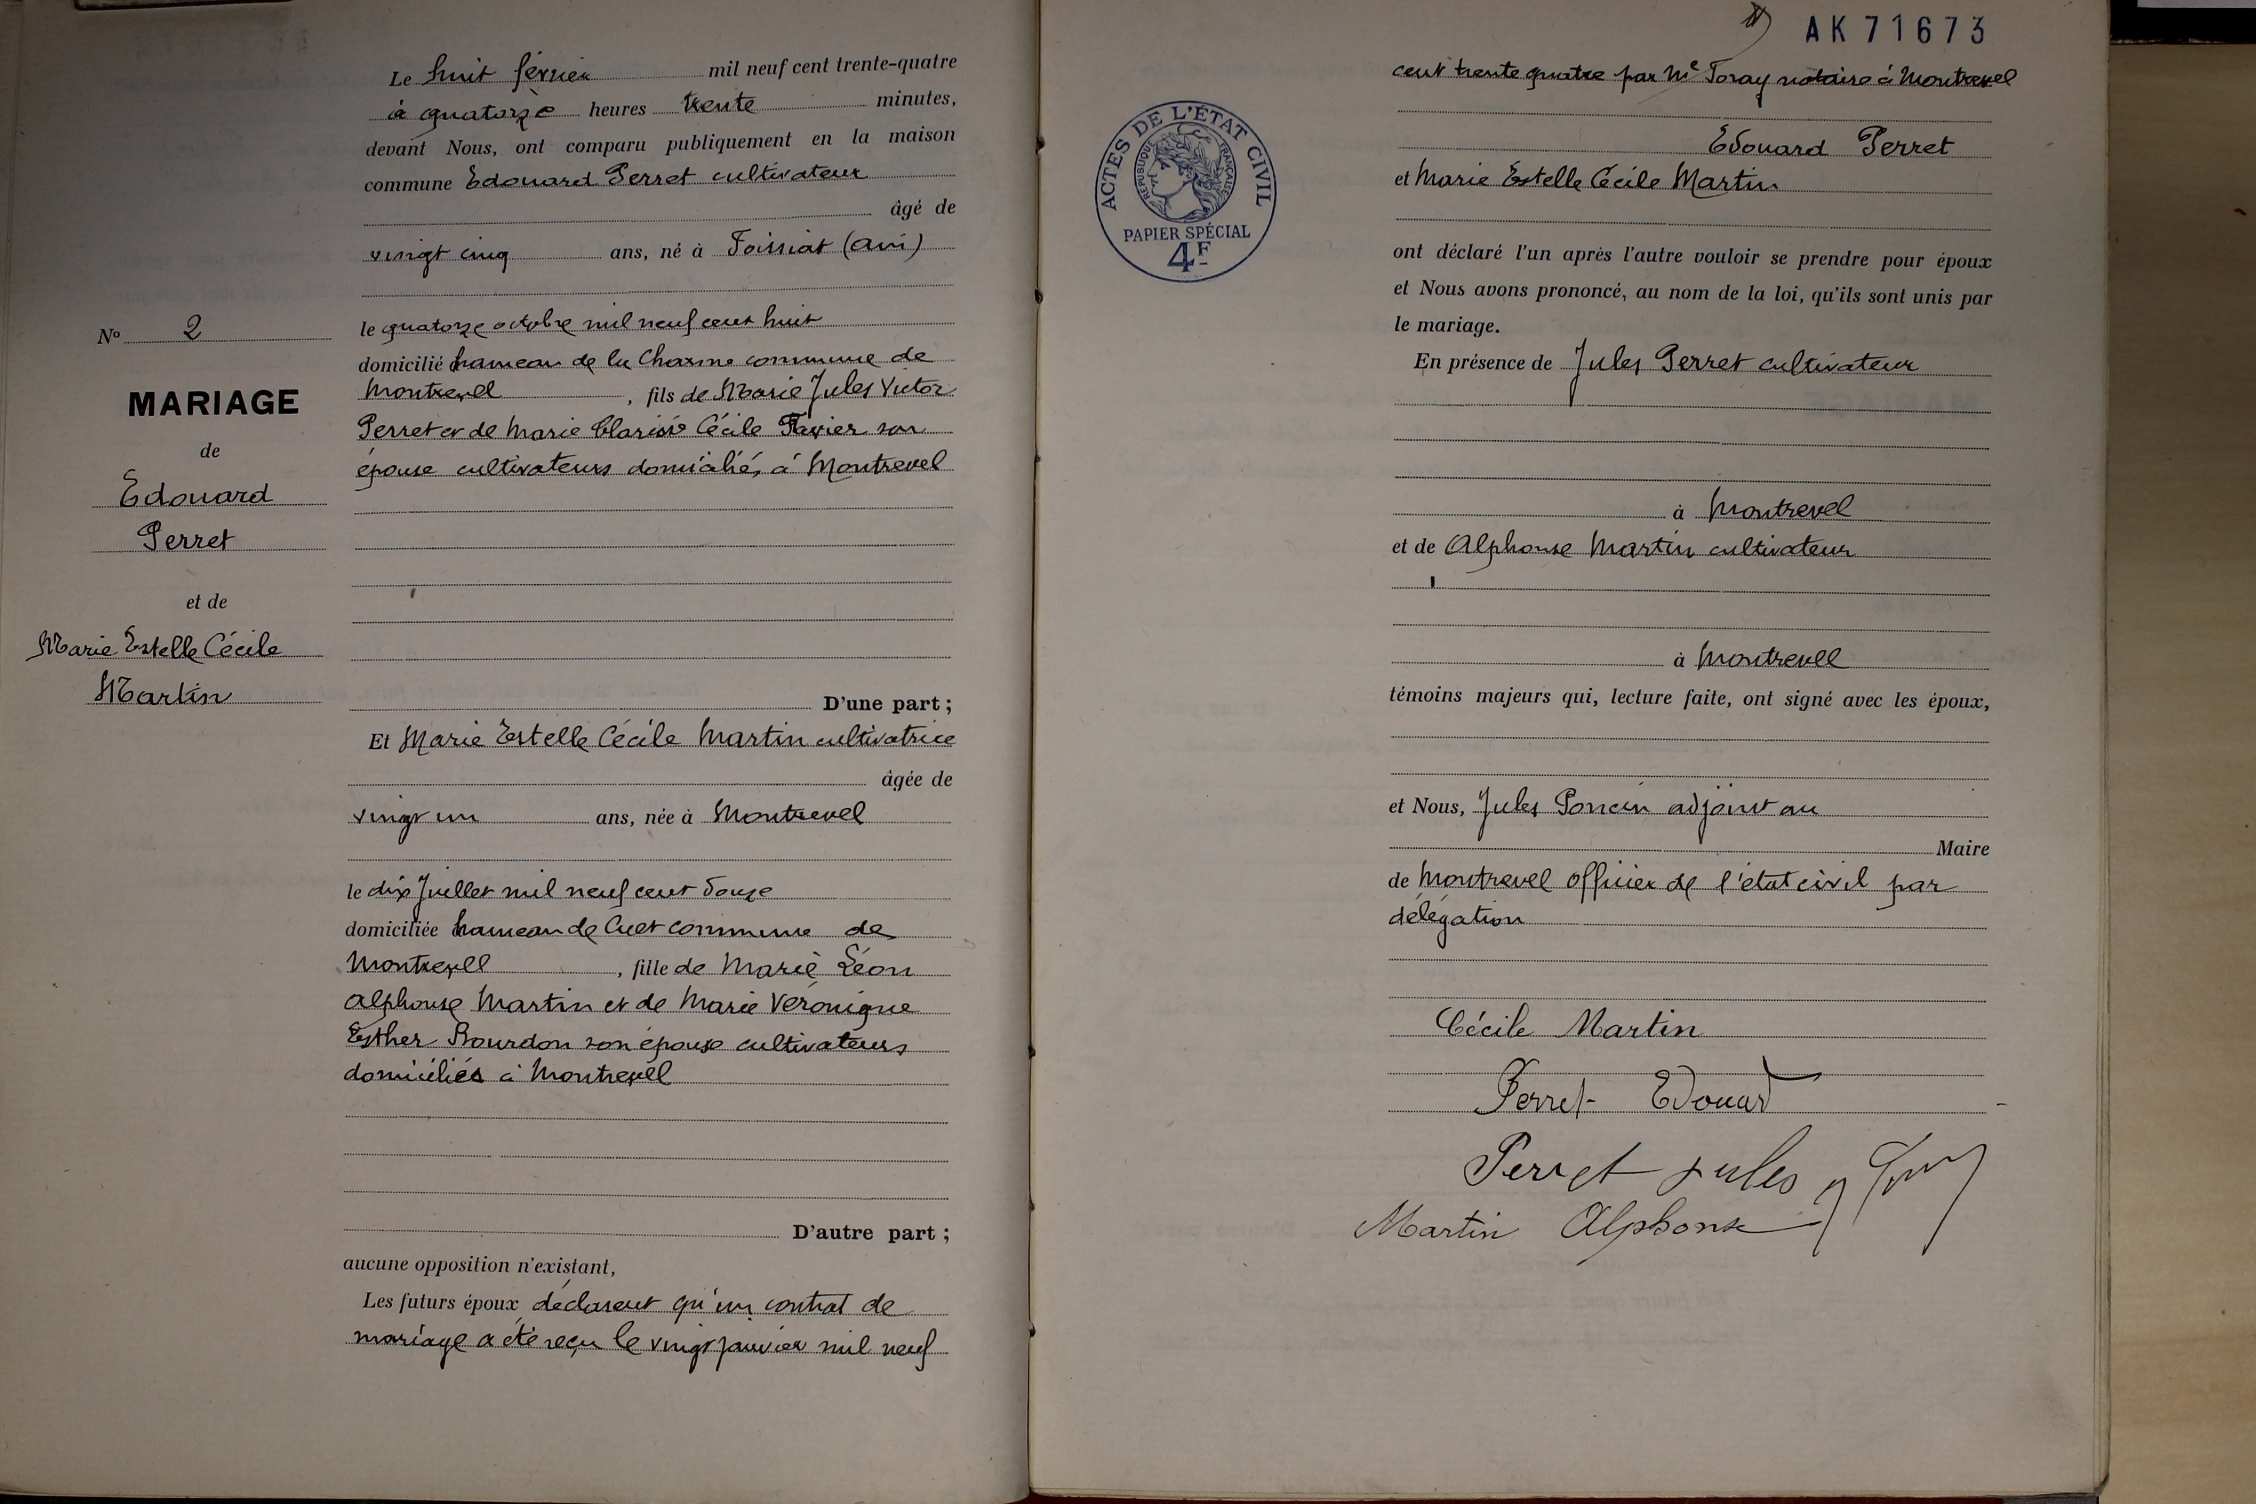 Le huit février mil neuf cent trente-quatre
à quatorze heures trente minutes,
devant Nous, ont comparu publiquement en la maison
commune Edouard Perret cultivateur
âgé de
vingt cinq ans, né à Foissiat (Ain)
le quatorze octobre mil neuf cent huit
domicilié hameau de la Charme commune de
Montrevel, fils de Marie Jules Victor
Perret et de Marie Clarisse Cécile Favier son
épouse cultivateurs domiciliés à Montrevel
D'une part ;
Et Marie Estelle Cécile Martin cultivatrice
âgée de
vingt un ans, née à Montrevel
le dix Juillet mil neuf cent douze
domiciliée hameau de Cuet commune de
Montrevel, fille de Marie Léon
Alphonse Martin et de Marie Véronique
Esther Bourdon son épouse cultivateurs
domiciliés à Montrevel
D'autre part ;
aucune opposition n'existant,
Les futurs époux déclarent qu'un contrat de
mariage a été reçu le vingt janvier mil neuf
N° 2
MARIAGE
de
Edouard
Perret
et de
Marie Estelle Cécile
Martin
AK 71673
cent trente quatre par Me Toray notaire à Montrevel
ACTES DE L'ÉTAT CIVIL
RÉPUBLIQUE FRANÇAISE
PAPIER SPÉCIAL
4F
Edouard Perret
et Marie Estelle Cécile Martin
ont déclaré l'un après l'autre vouloir se prendre pour époux
et Nous avons prononcé, au nom de la loi, qu'ils sont unis par
le mariage.
En présence de Jules Perret cultivateur
à Montrevel
et de Alphonse Martin cultivateur
à Montrevel
témoins majeurs qui, lecture faite, ont signé avec les époux,
et Nous, Jules Poncin adjoint au
Maire
de Montrevel officier de l'état civil par
délégation
Cécile Martin
Perret Edouard
Perret Jules
Martin Alphonse